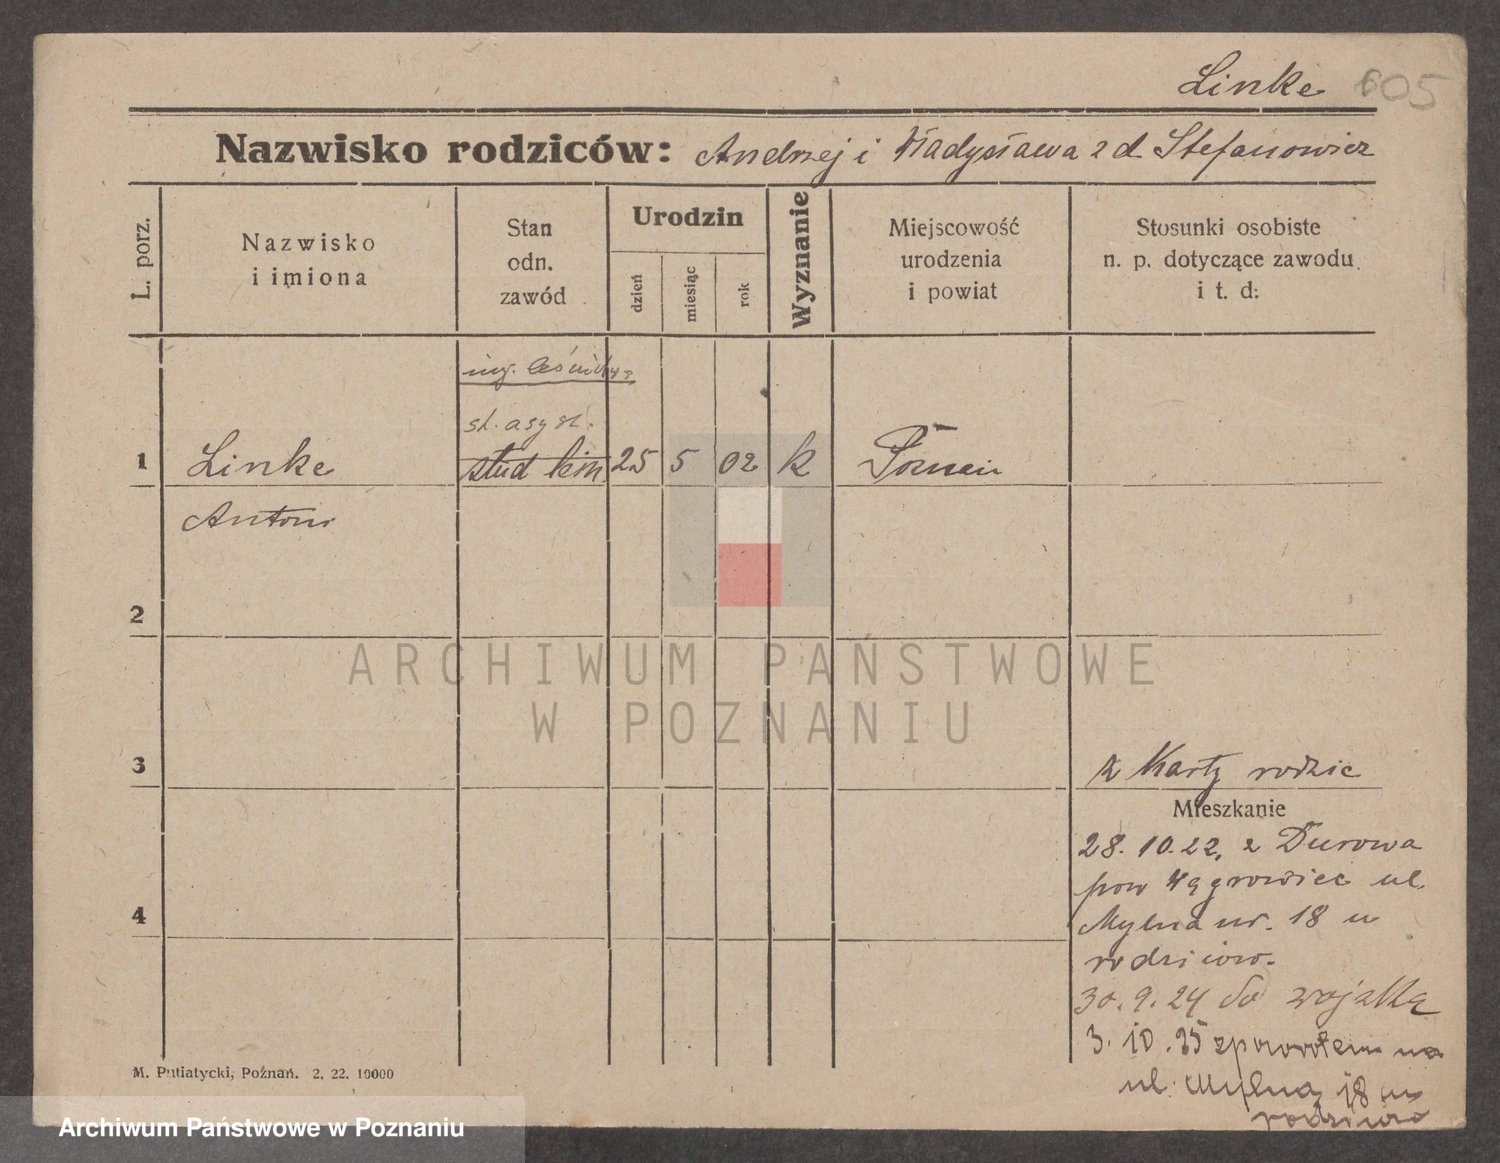 Linke 605
Nazwisko rodziców: Andrzej i Władysława z d Stefanowicz
L. porz.
Nazwisko
i imiona
Stan
odn.
zawód
Urodzin
dzień
miesiąc
rok
Wyznanie
Miejscowość
urodzenia
i powiat
Stosunki osobiste
n. p. dotyczące zawodu
i t. d:
inż.
st. asyst.
1 Linke stud 25 5 02 k Poznań
Antoni
2
ARCHIWUM PAŃSTWOWE
W POZNANIU
3
z Karty rodzic
Mieszkanie
28. 10. 22. z Durowa
pow Wągrowiec ul.
4
Mylna nr. 18 u
rodziców.
30. 9. 24 do wojska
3. 10. 25 zpowrotem na
ul. Mylna 18 u
rodziców
M. Putiatycki, Poznań. 2. 22. 10000
Archiwum Państwowe w Poznaniu